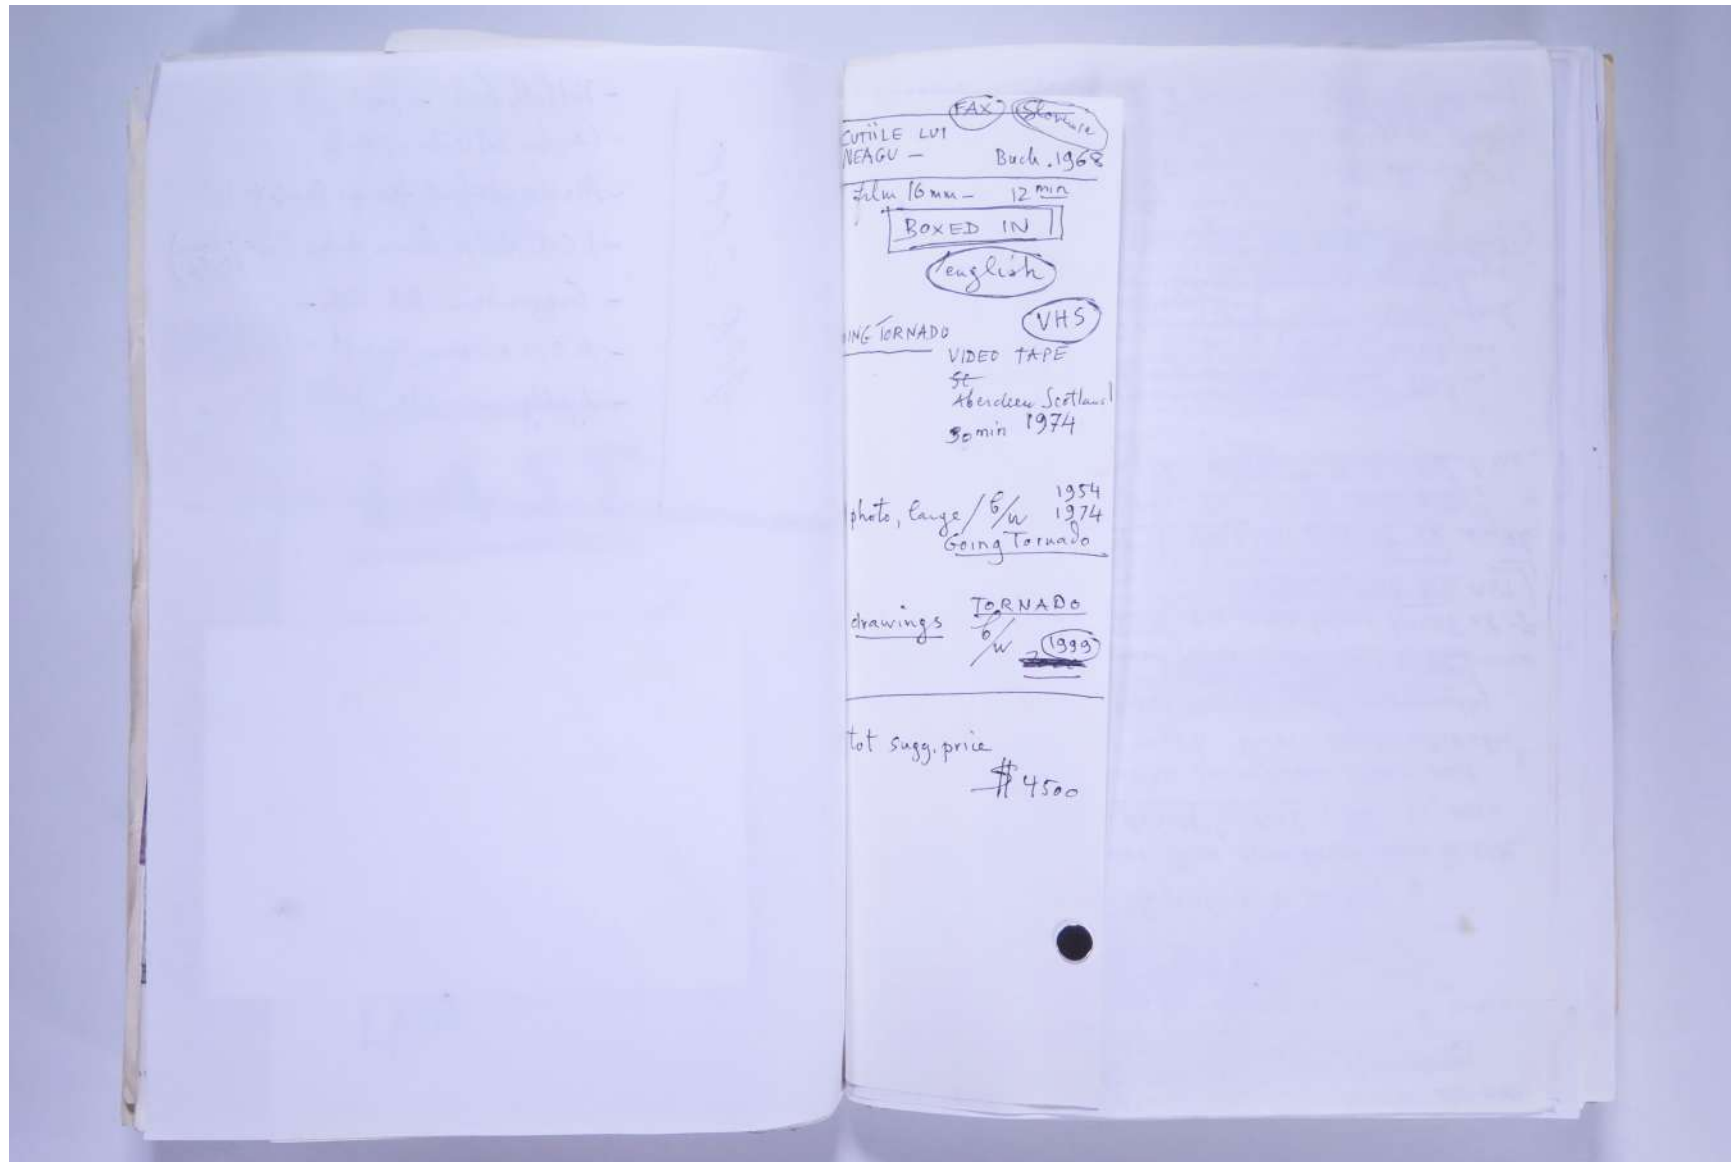 FAX
CUTIILE LUI
NEAGU — Buch. 1968
film 16 mm — 12 min
BOXED IN
english
VHS
OING TORNADO
VIDEO TAPE
St
Aberdeen Scotland
30 min 1974
1954
photo, large / b/w 1974
Going Tornado
TORNADO
drawings b/w 1999
tot sugg. price
$ 4500